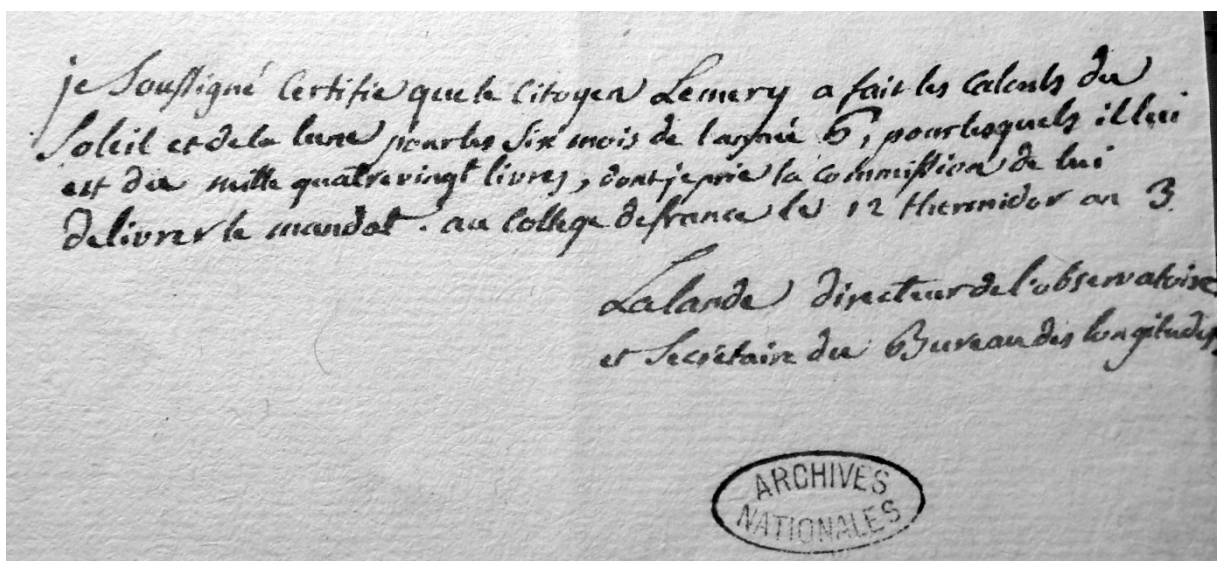 je soussigné certifie que le citoyen Lemery a fait les calculs du
soleil et de la lune pour les six mois de l'année 6, pour lesquels il lui
est du mille quatrevingt livres, dont je prie la commission de lui
delivrer le mandat. au college de france le 12 thermidor an 3
Lalande directeur de l'observatoire
et secrétaire du Bureau des longitudes
ARCHIVES
NATIONALES